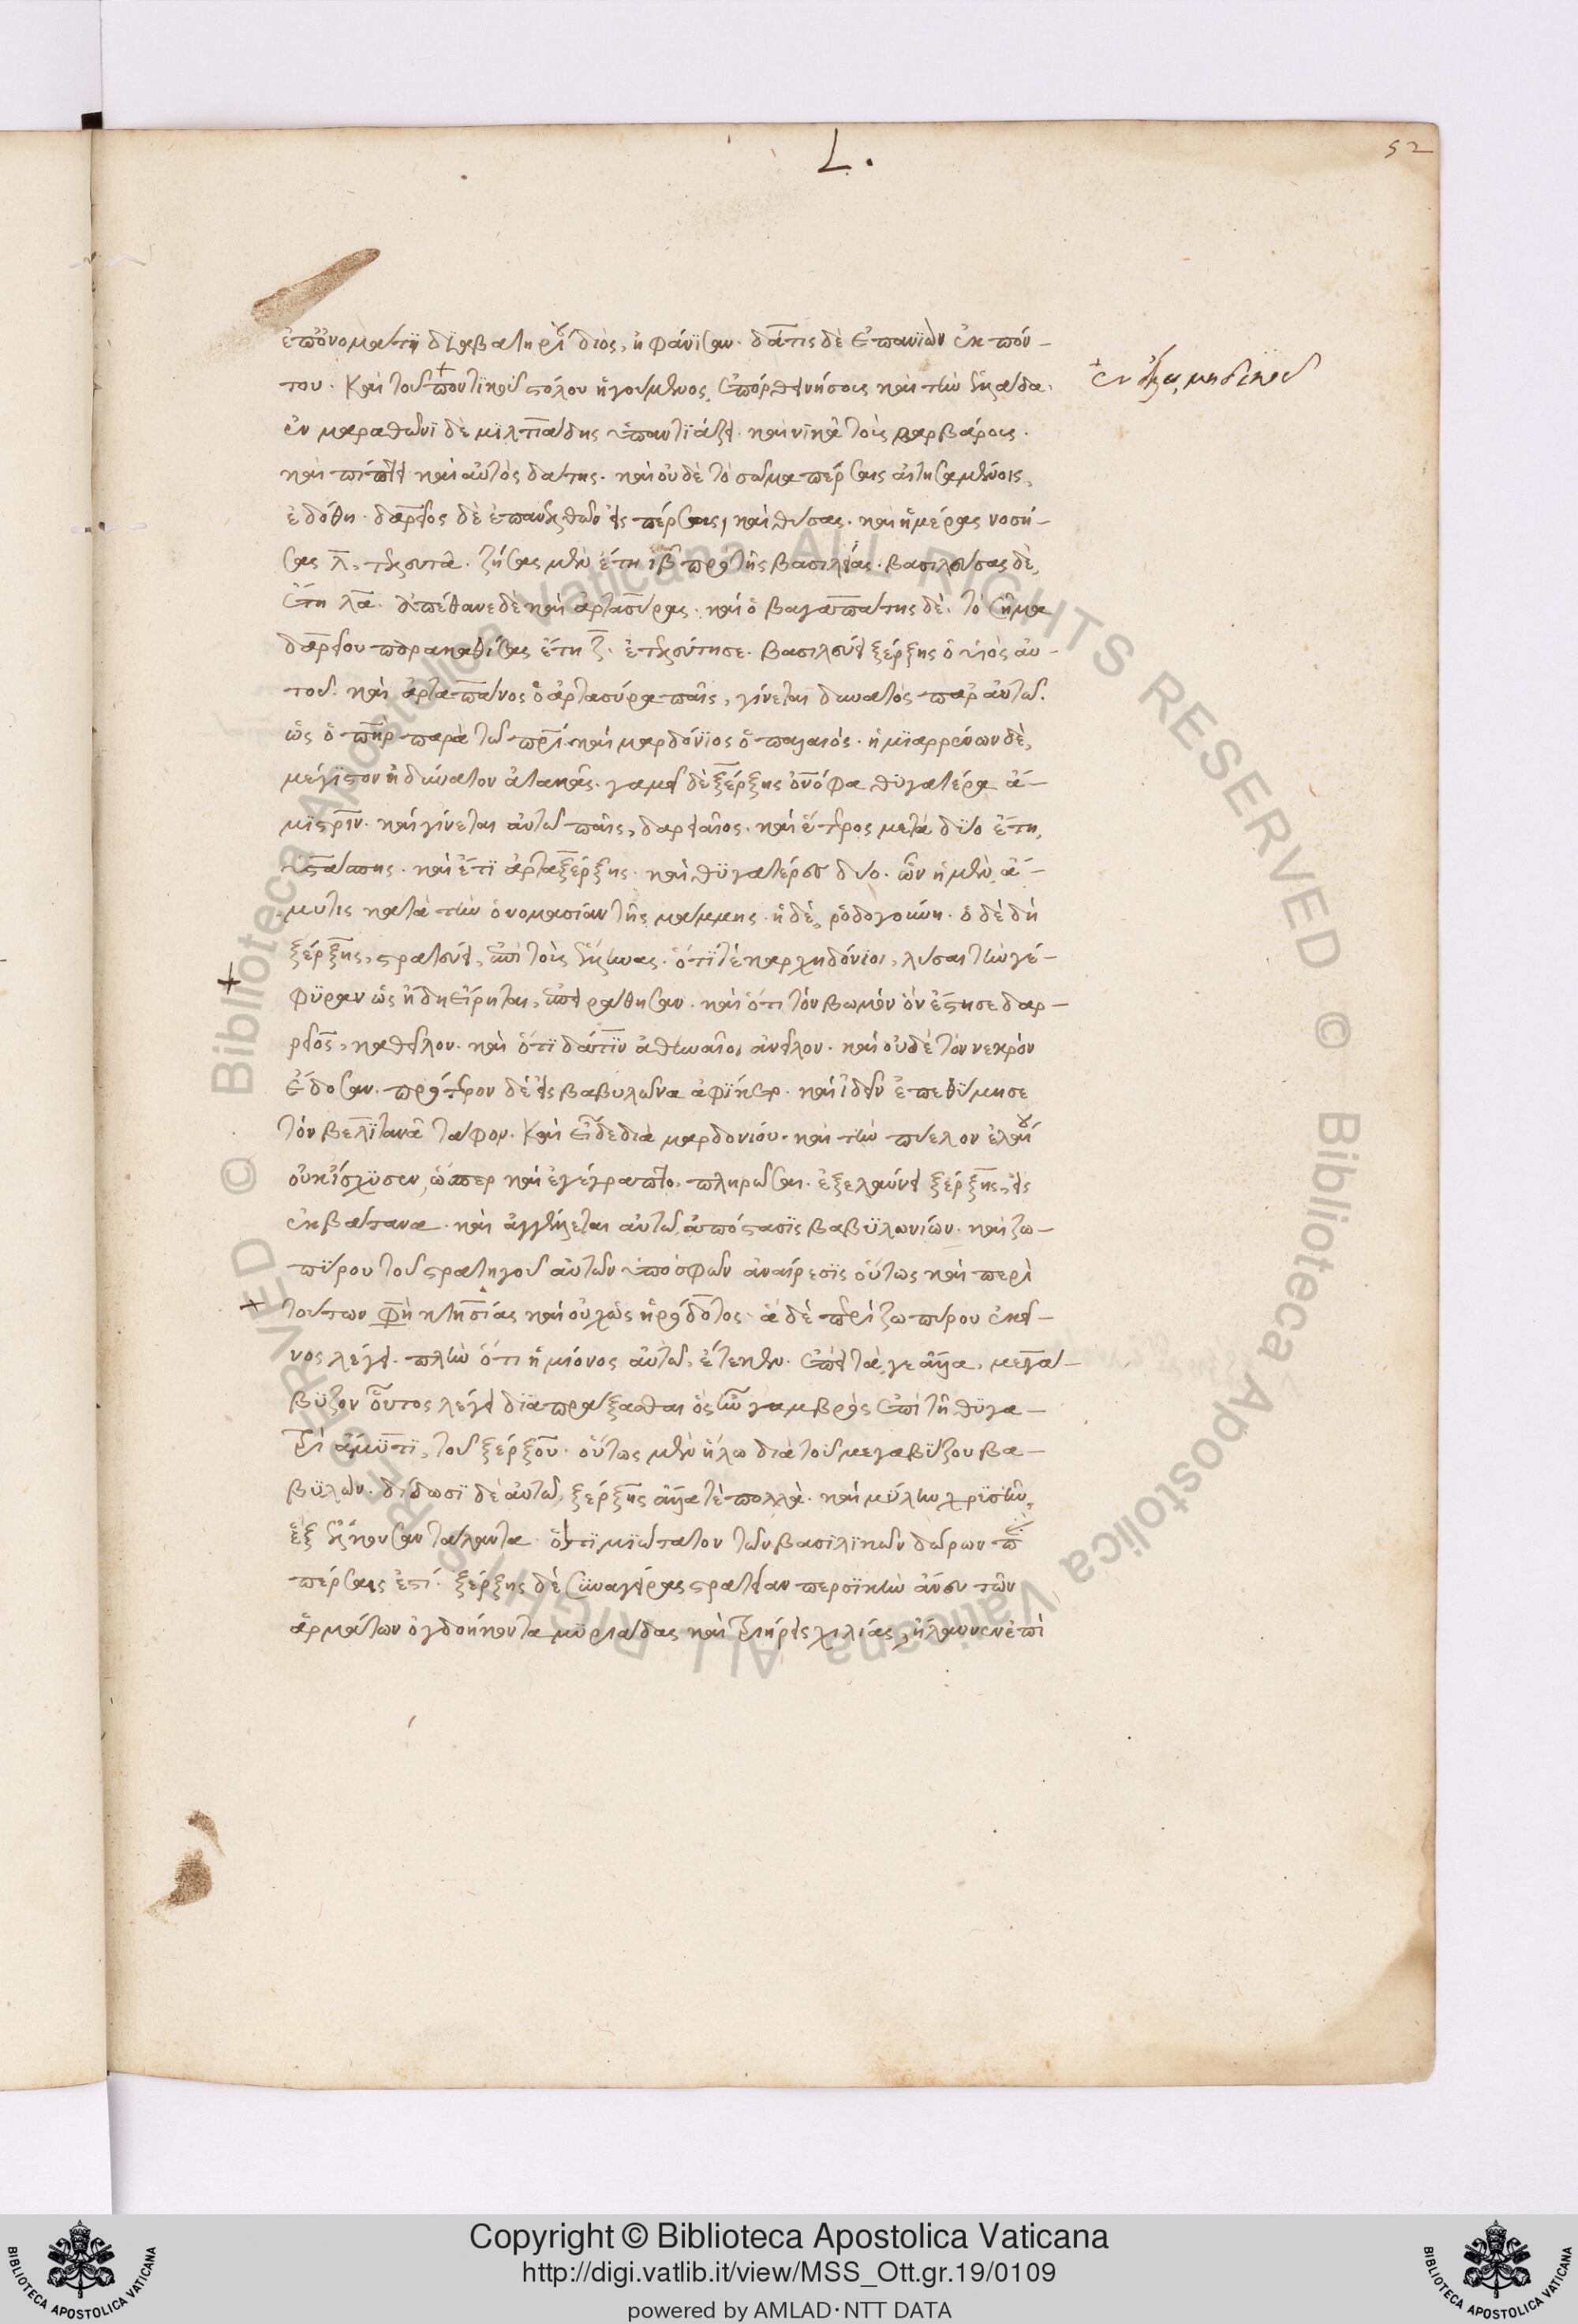 L.
52
ἐπονοματι διαβατηρίου διὸς, ἠφάνισαν. δάτις δὲ ἐπανιὼν ἐκ πόν-
του. καὶ τοῦ ποντικοῦ στόλου ἡγούμενος, ἐπόρθει νήσους καὶ τὴν ἑλλάδα.
ἐν τῷ ἄλλῳ, μηδικοῦ
ἐν μαραθῶνι δὲ μιλτιάδης ὑπαντιάζει. καὶ νικᾷ τοὺς βαρβάρους.
καὶ πίπτει καὶ αὐτὸς δάτις. καὶ οὐδὲ τὸ σῶμα πέρσαις αἰτησαμένοις,
ἐδόθη. δαρεῖος δὲ ἐπανελθὼν εἰς πέρσας, καὶ θύσας. καὶ ἡμέρας νοσή-
σας λ, τελευτᾷ. ζήσας μὲν ἔτη ιβ πρὸ τῆς βασιλείας. βασιλεύσας δὲ,
ἔτη λα. ἀπέθανε δὲ καὶ ἀρτασύρας. καὶ ὁ βαγαπάτης δὲ. τὸ σῆμα
δαρείου παρακαθίσας ἔτη ζ. ἐτελεύτησε. βασιλεύει ξέρξης ὁ υἱὸς αὐ-
τοῦ. καὶ ἀρτάπανος ὁ ἀρτασύρα παῖς, γίνεται δυνατὸς παρ' αὐτῷ.
ὡς ὁ πηρ παρὰ τῷ πρι. καὶ μαρδόνιος ὁ παλαιός. ἡμιαρρένων δὲ,
μέγιστον ἠδύνατο νατακᾶς. γαμεῖ δὲ ξέρξης ὀνόφα θυγατέρα ἀ-
μίστριν. καὶ γίνεται αὐτῷ παῖς, δαρειαῖος. καὶ ἕτερος μετὰ δύο ἔτη,
ὑστάσπης. καὶ ἔτι ἀρταξέρξης. καὶ θυγατέρες δύο. ὧν ἡ μὲν, ἄ-
μυτις κατὰ τὴν ὀνομασίαν τῆς μάμμης. ἡ δὲ, ῥοδογούνη. ὁ δὲ δὴ
ξέρξης, στρατεύει, ἐπὶ τοὺς ἕλληνας. ὅτι τὲ καρχηδόνιοι, λῦσαι τὴν γέ-
φυραν ὡς ἤδη εἴρηται, ἐπειράθησαν. καὶ ὅτι τὸν βωμὸν ὃν ἔστησε δαρ-
ρεῖος, καθεῖλον. καὶ ὅτι δάτιν ἀθηναῖοι ἀνεῖλον. καὶ οὐδὲ τὸν νεκρὸν
ἔδοσαν. πρότερον δὲ εἰς βαβυλῶνα ἀφίκετο. καὶ ἰδεῖν ἐπεθύμησε
τὸν βελιτανᾶ τάφον. καὶ εἶδε διὰ μαρδονίου. καὶ τὴν πύελον ἐλαίου
οὐκ ἴσχυσεν, ὥσπερ καὶ ἐγέγραπτο, πληρῶσαι. ἐξελαύνει ξέρξης, εἰς
ἐκβάτανα. καὶ ἀγγέλλεται αὐτῷ, ἀπόστασις βαβυλωνίων. καὶ ζω-
πύρου τοῦ στρατηγοῦ αὐτῶν ὑπὸ σφῶν ἀναίρεσις οὕτως καὶ περὶ
τούτων φησὶ κτησίας καὶ οὐχ ὡς ἡρόδοτος. ἃ δὲ περὶ ζωπύρου ἐκεῖ-
νος λέγει. πλὴν ὅτι ἡμίονος αὐτῷ, ἔτεκεν. ἐπεὶ τά γε ἄλλα, μεγά-
βυζον οὗτος λέγει διαπράξασθαι ὃς ἦν γαμβρὸς ἐπὶ τῇ θυγα-
τρὶ ἀμύτι, τοῦ ξέρξου. οὕτως μὲν ἥλω διὰ τοῦ μεγαβύζου βα-
βυλών. δίδωσι δὲ αὐτῷ, ξέρξης ἄλλα τὲ πολλὰ. καὶ μύλην χρυσῆν,
ἓξ ἕλκουσαν τάλαντα. ὃ τιμιώτατον τῶν βασιλικῶν δώρων π
πέρσαις ἐστί. ξέρξης δὲ συναγείρας στρατείαν περσικὴν ἄνευ τῶν
ἁρμάτων ὀγδοήκοντα μυριάδας καὶ τριήρεις χιλίας, ἤλαυνεν ἐπὶ
Copyright © Biblioteca Apostolica Vaticana
http://digi.vatlib.it/view/MSS_Ott.gr.19/0109
powered by AMLAD·NTT DATA